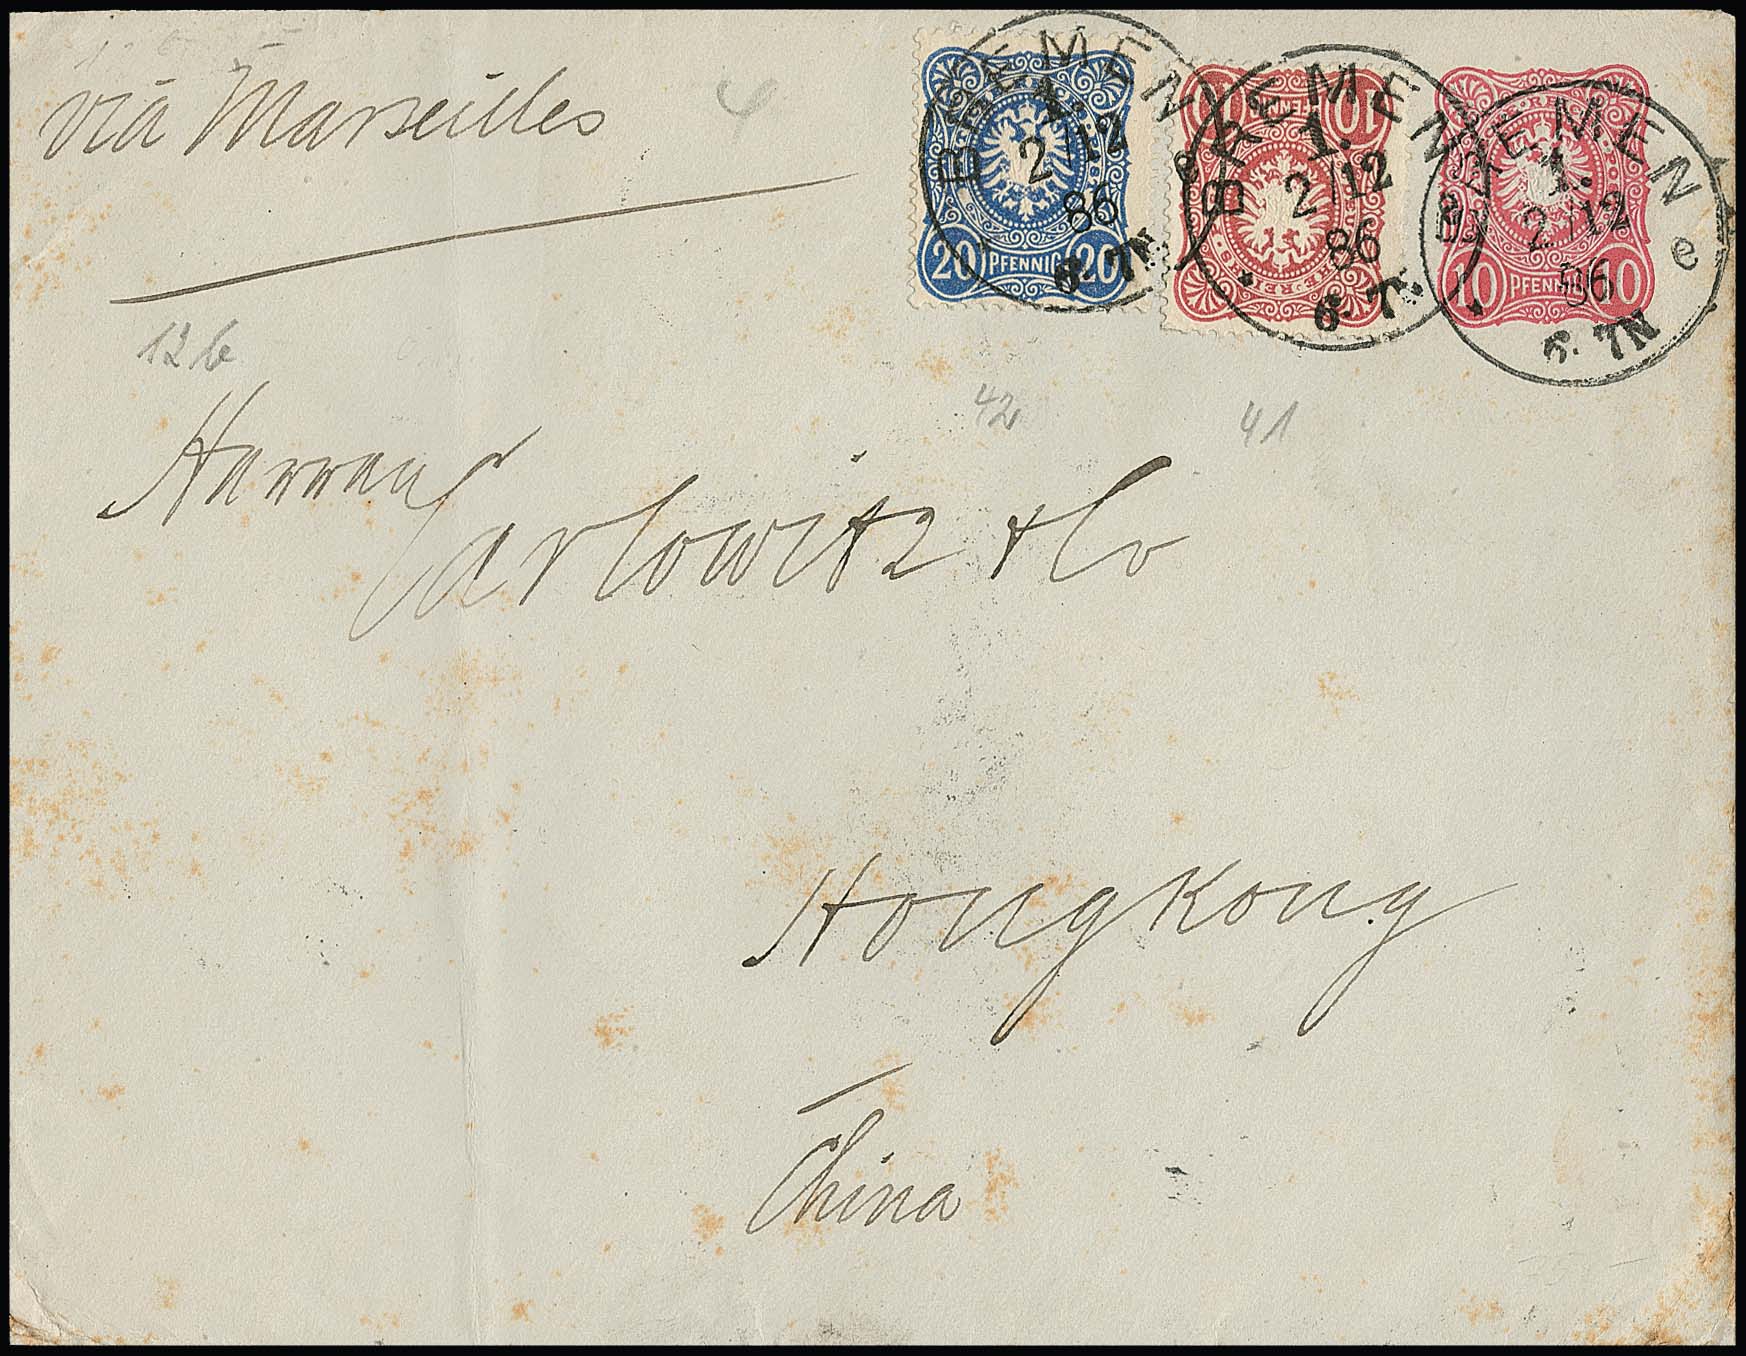 via Marseilles
4
BREMEN
1.
2/12
86
6-7N
20 PFENNIG 20
BREMEN
1.
2/12
86
6-7N
10
BREMEN
1.
2/12
86
6-7N
e
10 PFENNIG 10
12b
42
41
Herren
Carlowitz & Co
Hongkong
China